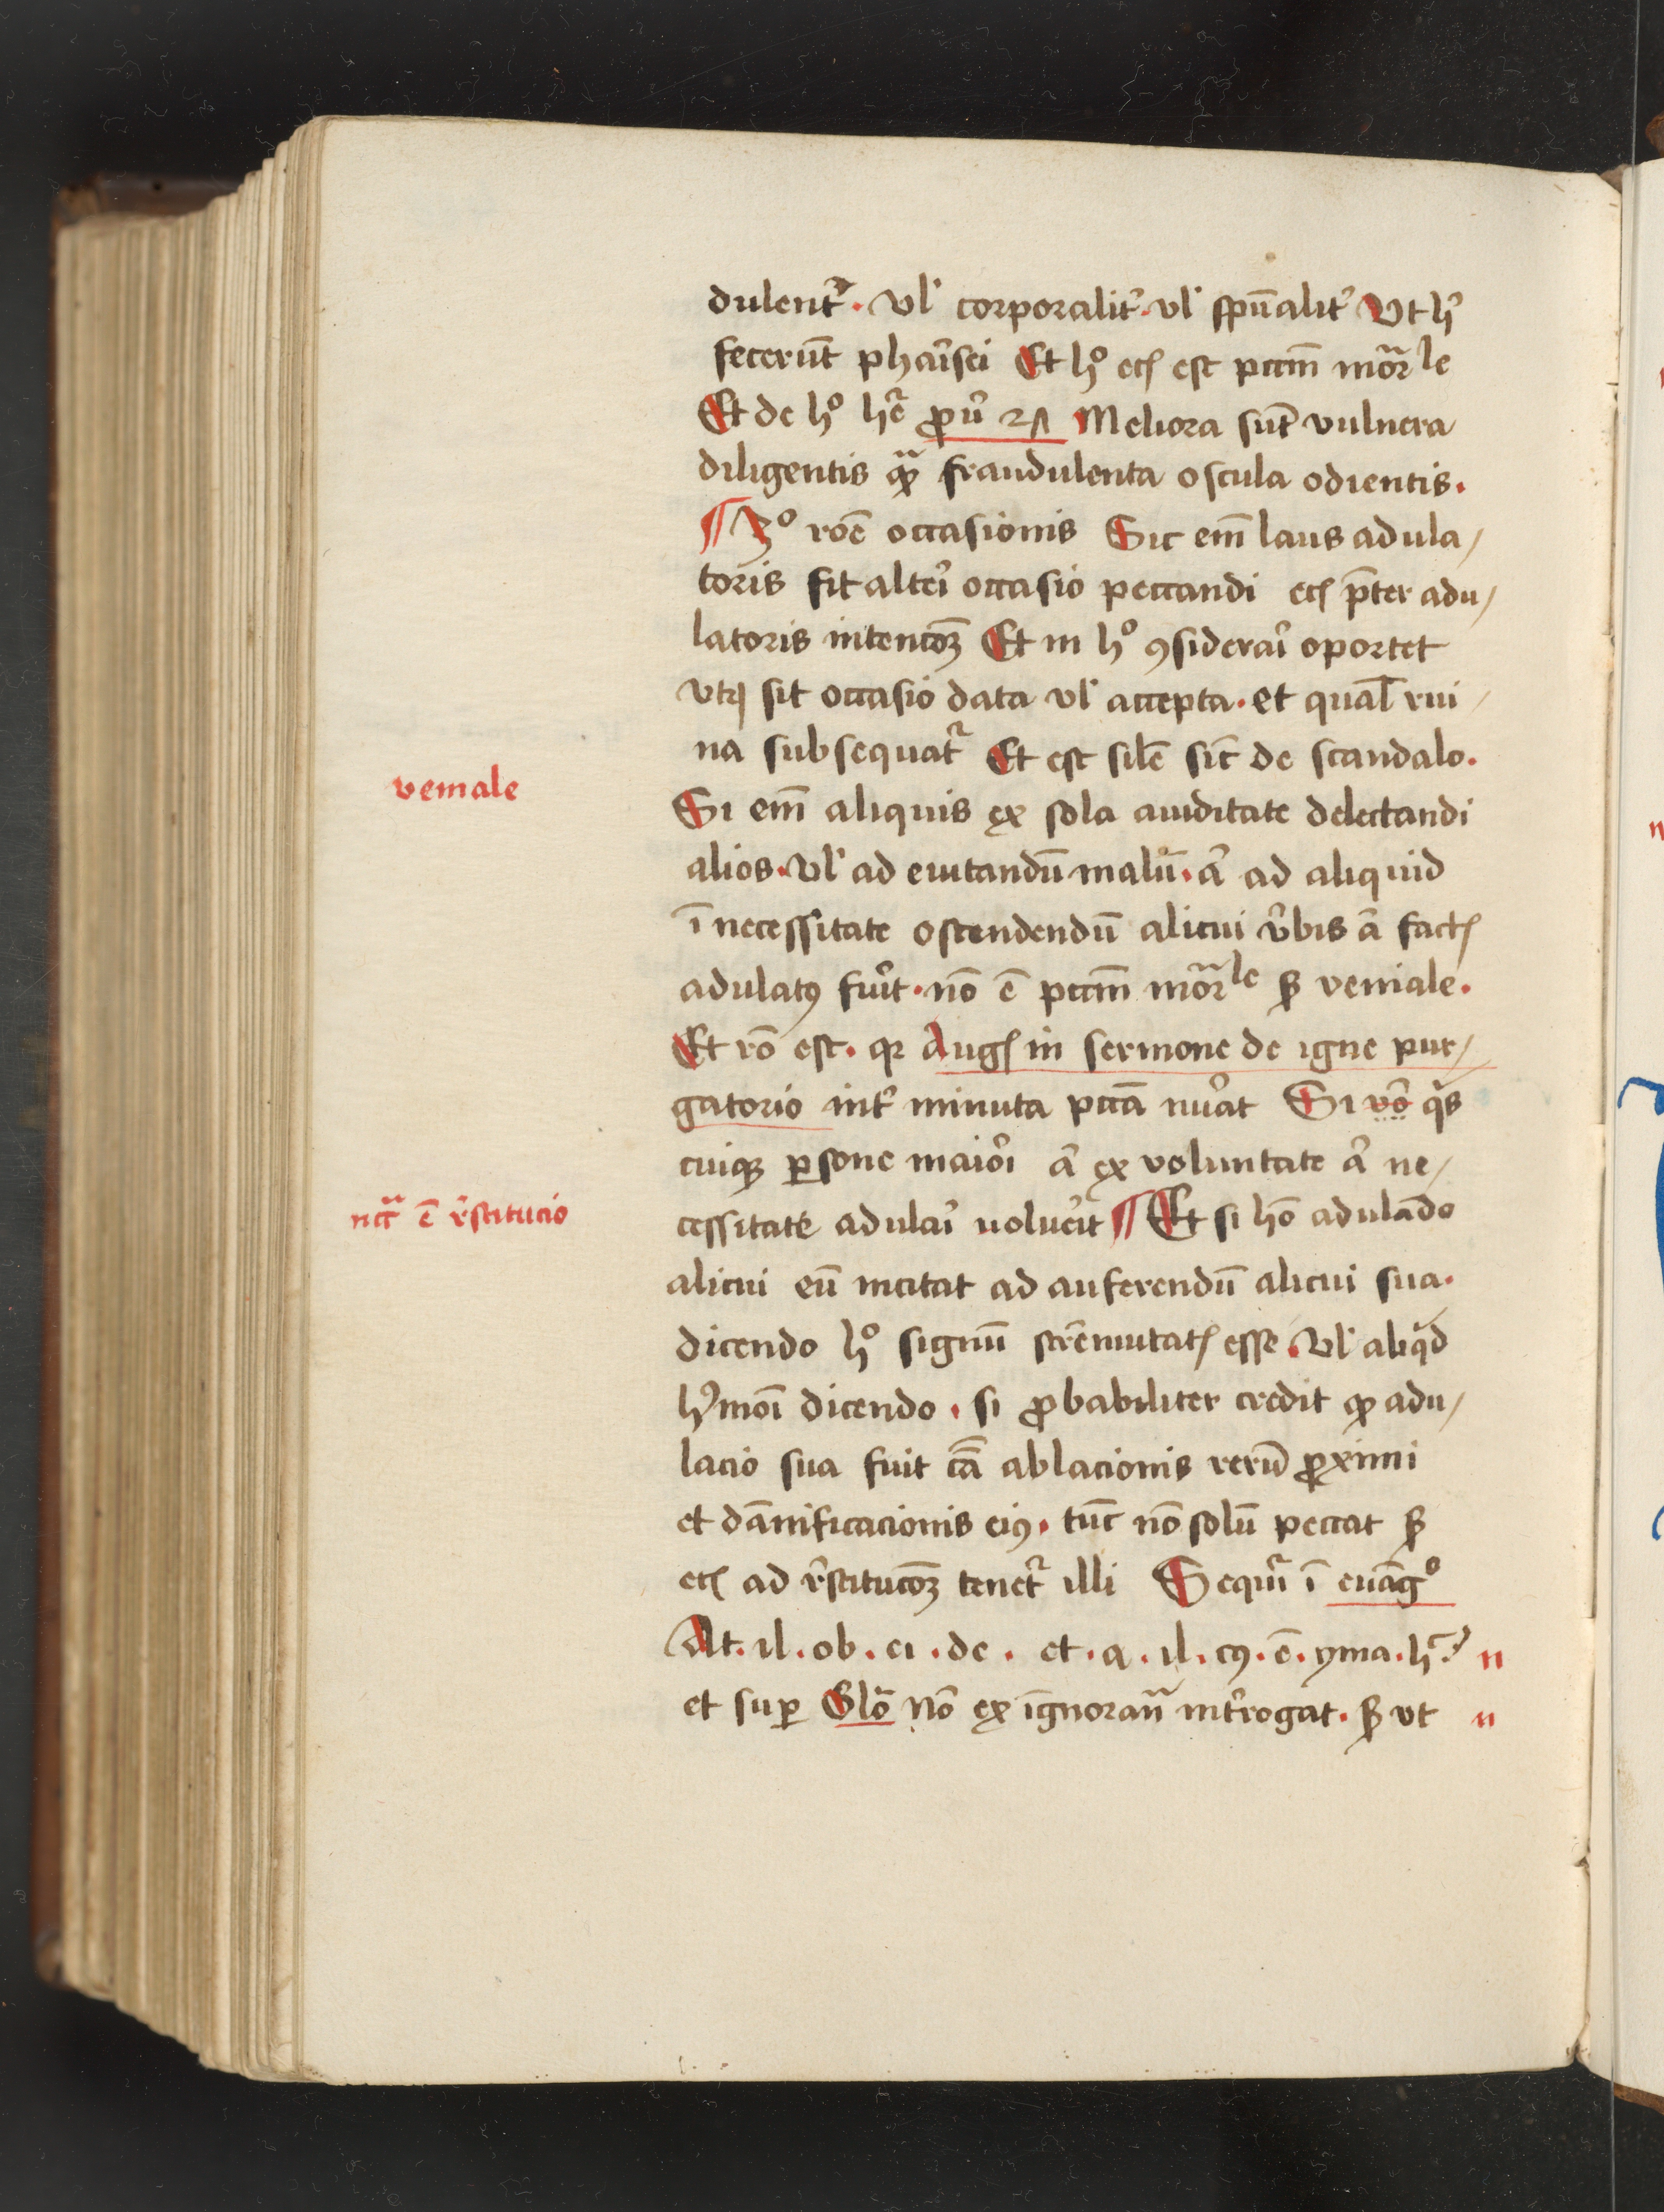 dulent᷑. vl̕ corporalit᷑. vl̕ spūalit᷑ Vt h᷑
fecerūt pha᷑isei Et hº ecꝭ est pctm̄ mor̄le
Et de hº hr̄ ꝓu᷑ 27 Meliora sūt vulnera
diligentis qᷓꝫ fraudulenta oscula odientis.
¶ 3º roē occasionis Sic em̄ laus adula/
toris fit alte᷑i occasio peccandi ecꝭ p̄ter adu/
latoris intencōꝫ Et in hº ꝯsidera᷑i oportet
vtꝝ sit occasio data vl̕ accepta. et qual̄ rui/
na subsequat᷑ Et est sil̄e sic̄ de scandalo.
veniale
Si em̄ aliquis ex sola auiditate delectandi
alios. vl̕ ad euitandū malū. a᷑ ad aliquid
ī necessitate ostendendū alicui v᷑bis a᷑ factꝭ
adulatꝰ fu᷑it. nō ē pctm̄ mor̄le sꝫ veniale.
Et rō est. qꝛ Augꝭ in sermone de igne pur/
gatorio int᷑ minuta pctā nu᷑at Si vo᷑ qͥs
cuiqꝫ ꝑsone maio᷑i a᷑ ex voluntate a᷑ ne/
nccᷓ ē r᷑stitucio
cessitate adula᷑i uolue᷑it ¶ Et si hō adulādo
alicui eū incitat ad auferendū alicui sua.
dicendo hº signū strēnuitatꝭ esse. vl̕ aliqͥd
hꝰmōi dicendo. si ꝓbabiliter credit ꝙ adu/
lacio sua fuit cā ablacionis rerū ꝓximi
et dānificacionis eiꝰ. tūc nō solū peccat sꝫ
ecꝭ ad r᷑stitucōꝫ tenet᷑ illi Sequit᷑ ī euāgº
At. il. ob. ei. de. et. a. il. cꝰ. ē. yma. h̄?
et suꝑ Glō Nō ex ignorān int᷑rogat. sꝫ vt